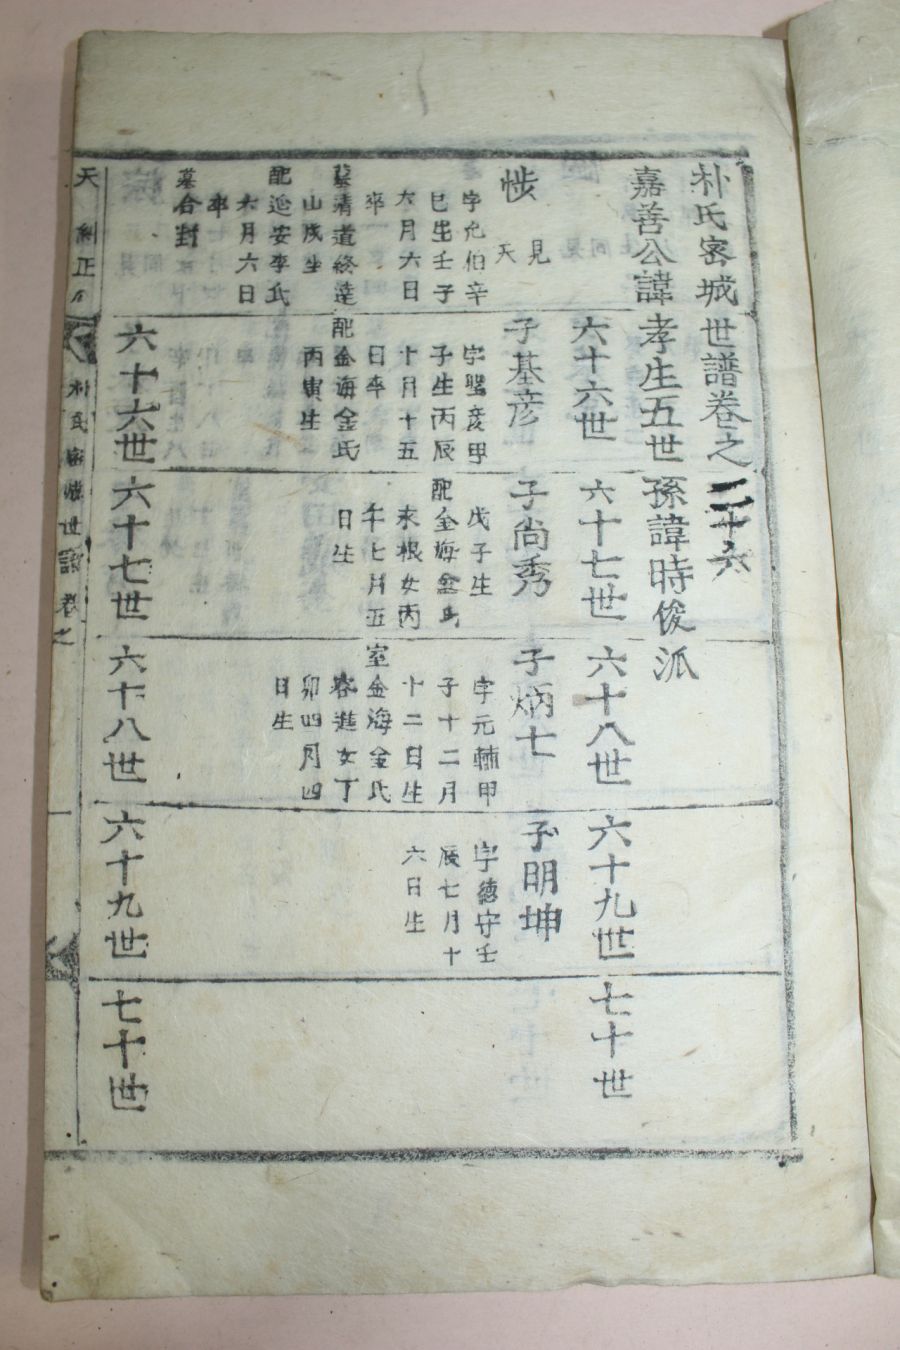 朴氏密城世譜卷之二十六
嘉善公諱孝生五世孫諱時俊派
六十六世
六十七世
六十八世
六十九世
七十世
惵
見
天
字允伯辛
巳生壬子
六月六日
卒
墓清道終達
山戌坐
配延安李氏
六月六日
卒
墓合封
子基彦
字聖彦甲
子生丙辰
十月十五
日卒
配金海金氏
丙寅生
子尚秀
戊子生
配金海金氏
末根女丙
午七月五
日生
子炳七
字元輔甲
子十二月
十二日生
室金海金氏
容進女丁
卯四月四
日生
子明坤
字德守壬
辰七月十
六日生
六十六世
六十七世
六十八世
六十九世
七十世
天
朴氏密城世譜卷之